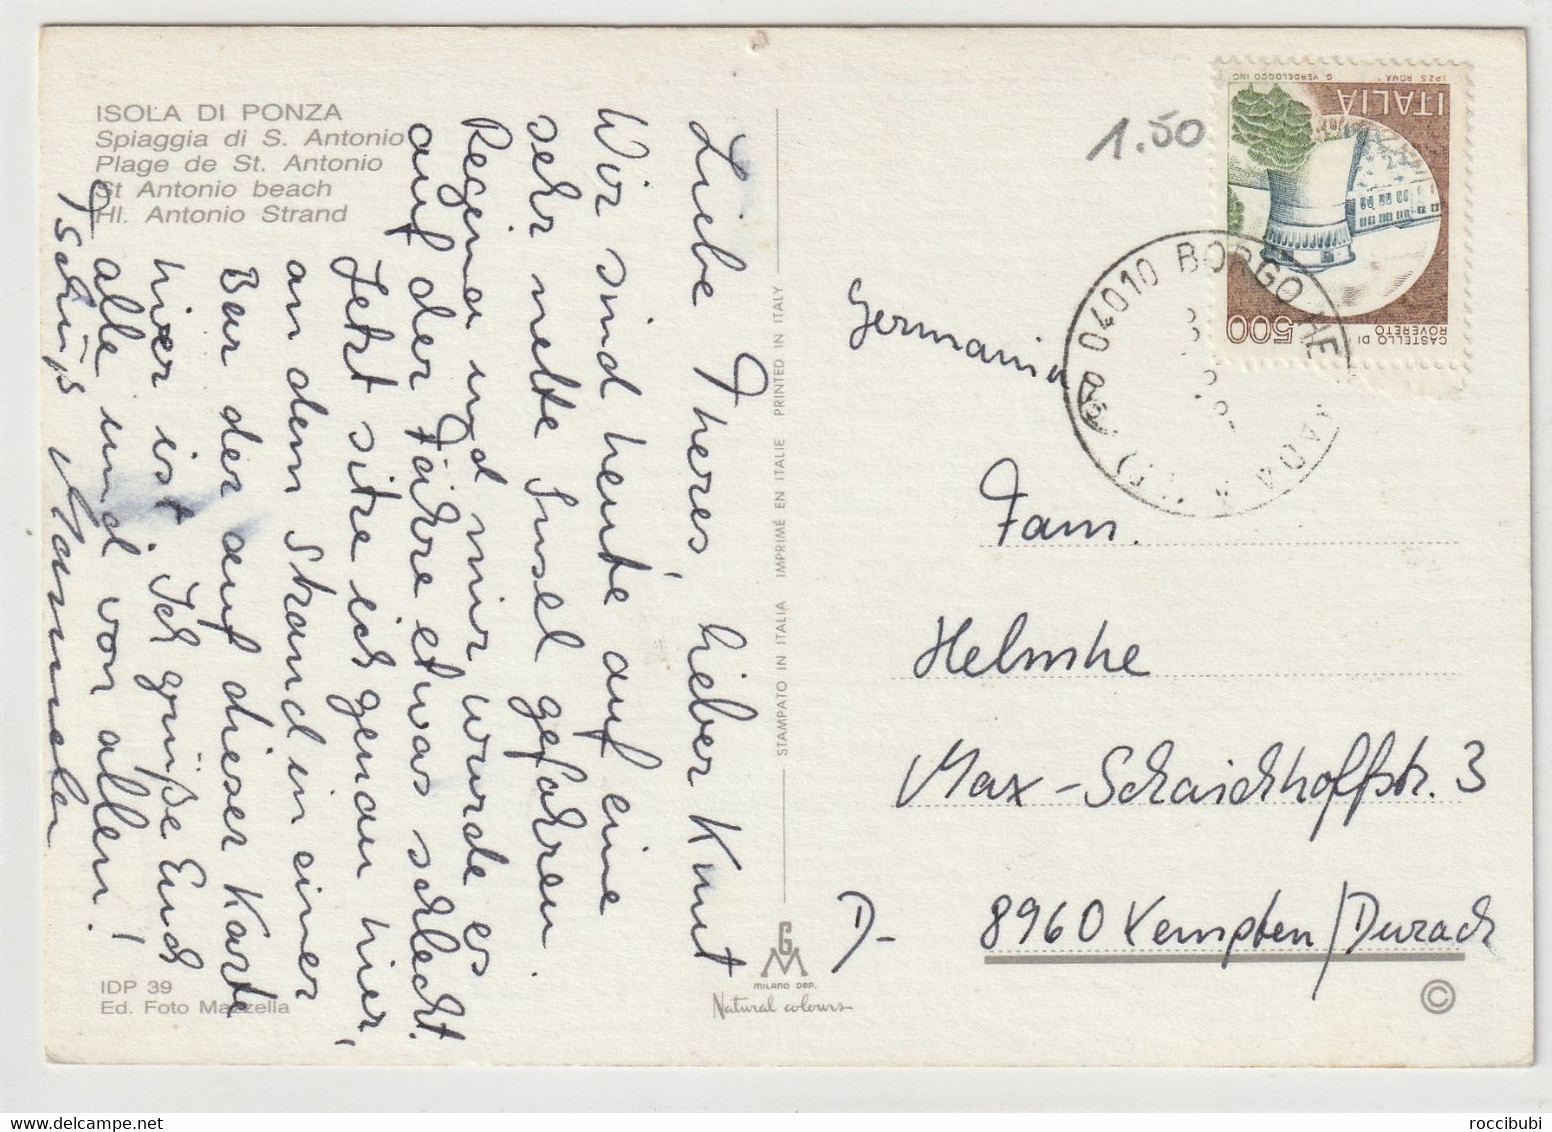 ISOLA DI PONZA
Spiaggia di S. Antonio
Plage de St. Antonio
St Antonio beach
Hl. Antonio Strand
Liebe Theres, lieber Knut
Wir sind heute auf eine
sehr nette Insel gefahren.
Regina und mir wurde es
auf der Fähre etwas schlecht.
Jetzt sitze ich genau hier,
an dem Strand in einer
Bar der auf dieser Karte
hier ist. Ich grüße Euch
alle und von allen!
Tschüß Manuela
IDP 39
Ed. Foto Mazzella
STAMPATO IN ITALIA IMPRIMÉ EN ITALIE PRINTED IN ITALY
GM
MILANO DEP.
Natural colours
1.50
I.P.Z.S. ROMA G. VERDELOCCO INC.
ITALIA
500
CASTELLO DI
ROVERETO
04010 BORGO
Germania
Fam.
Helmke
Max-Schaidhoffstr. 3
D- 8960 Kempten/Durach
©
roccibubi